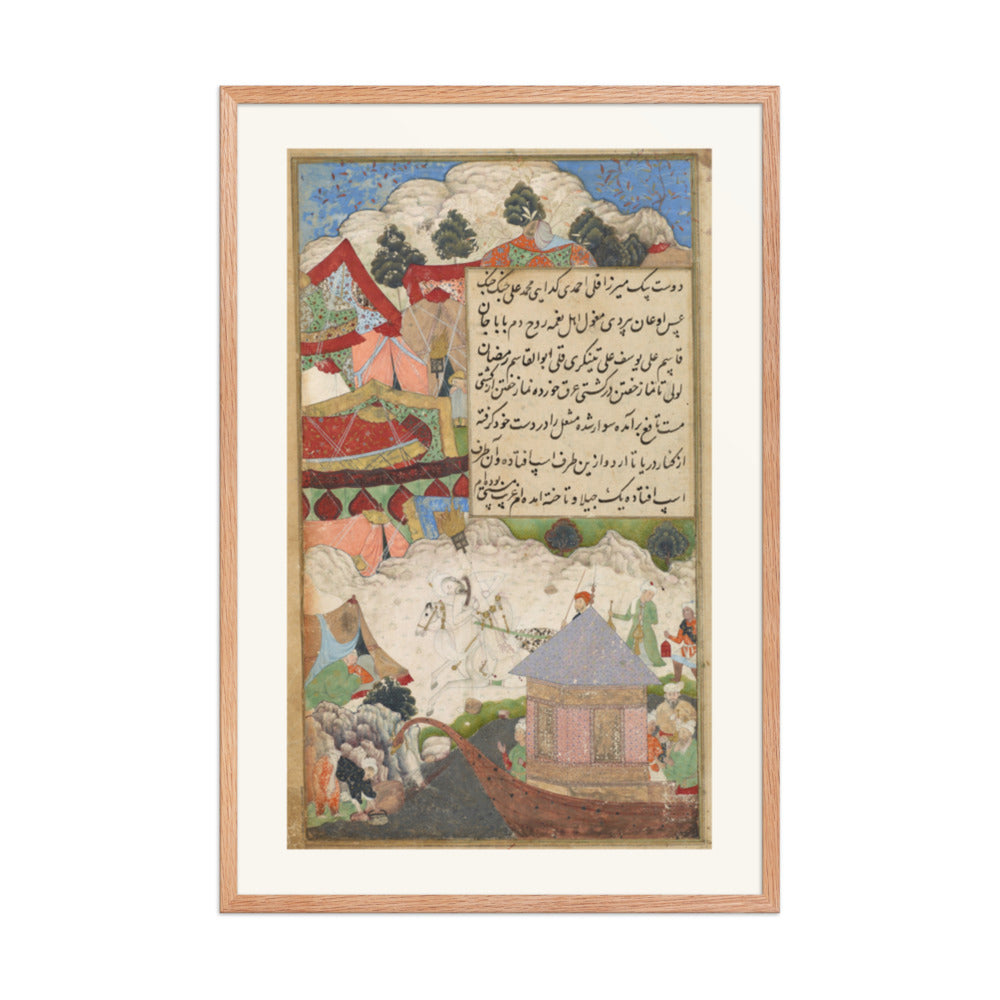 دوست بیک میرزا قلی احمدی کدایی محمد علی جنک جنک
پس اوغان بردی مغول اهل نغمه روح دم بابا جان
قاسم علی یوسف علی تینکری قلی ابوالقاسم رمضان
لولی تا نماز خفتن در کشتی عرق خورده نماز خفتن از کشتی
مست تافع برآمده سوار شده مشعل را در دست خود کرفته
از کنار دریا تا اردو ازین طرف اسپ افتاده و آن طرف
اسپ افتاده یک جیلاو تاخته امده ام غریب مستی بوده ام